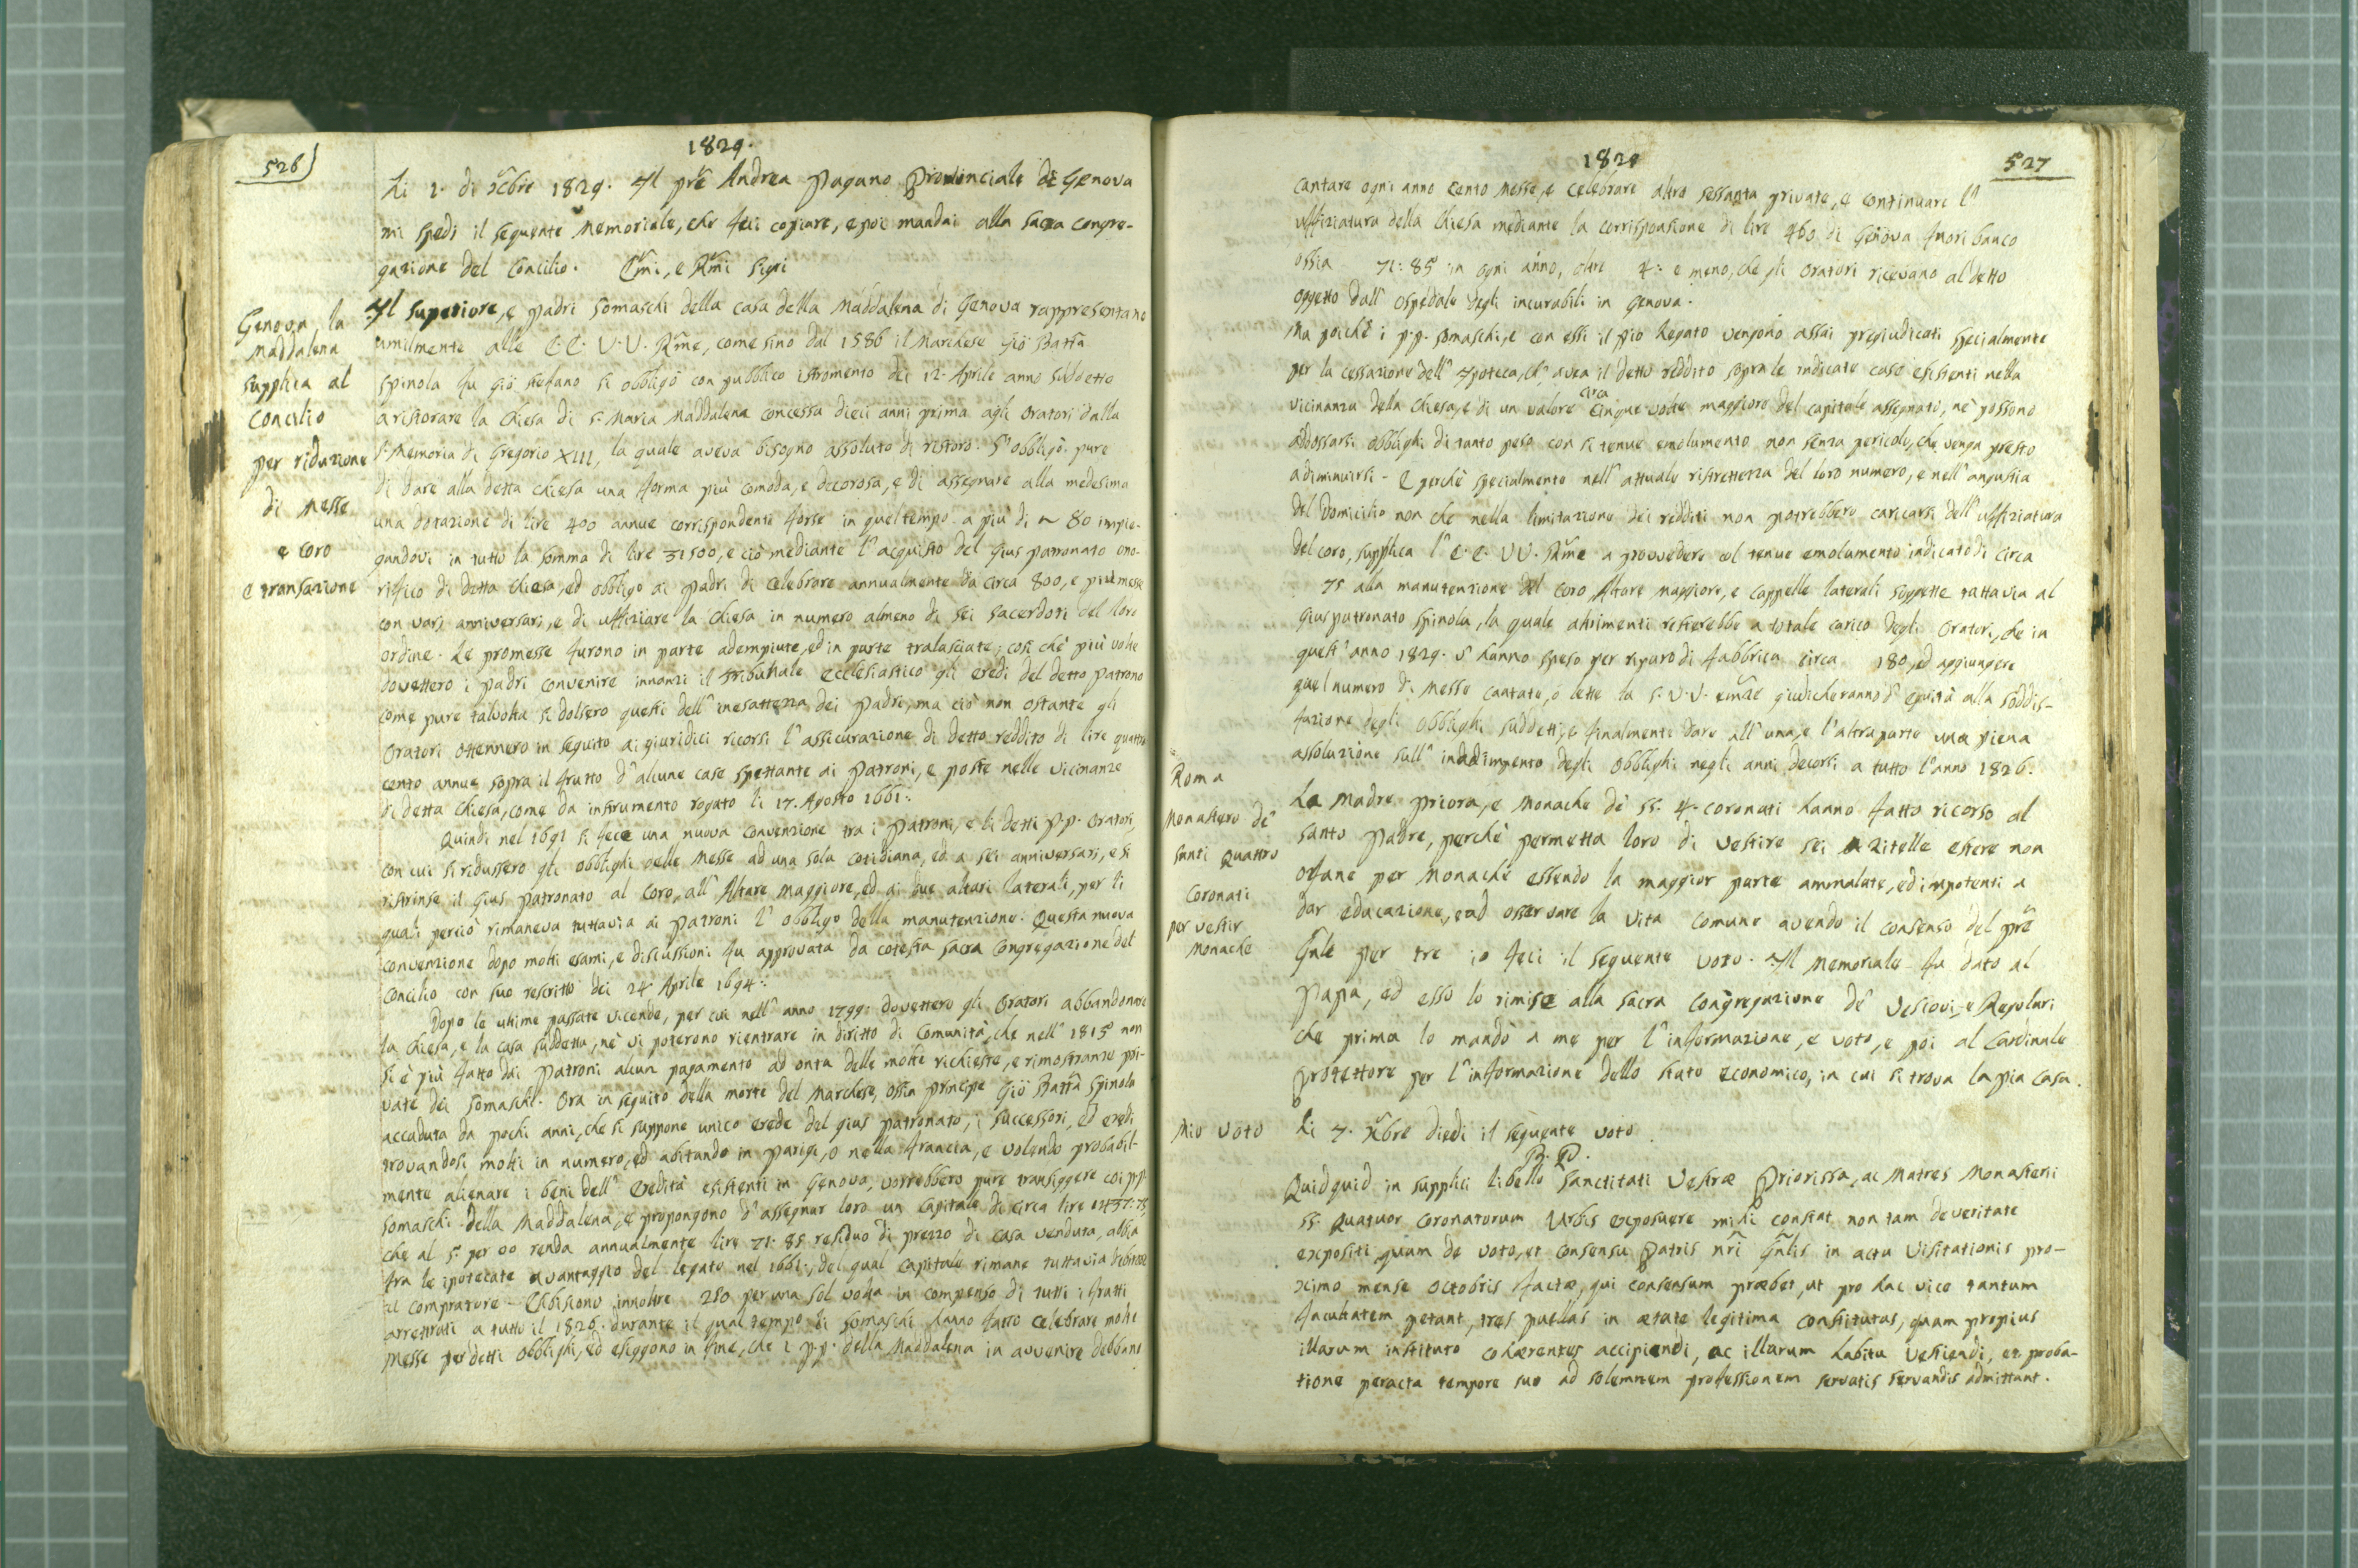 526)
1829.
Li 2. di Xcbre 1829. Il pre Andrea Pagano Provinciale di Genova
mi spedì il seguente Memoriale, che feci copiare, e poi mandai alla sacra congre-
gazione del Concilio. Emi, e Rmi Sigri
Genova, la
Maddalena
supplica al
Concilio
per riduzione
di Messe
e Coro
e transazione
Il superiore, e padri somaschi della casa della Maddalena di Genova rappresentano
umilmente alle E.E. V.V. Rme, come sino dal 1586 il Marchese Gio Batta
Spinola fu Gio Stefano si obbligò con pubblico istromento dei 12. Aprile anno suddetto
a ristorare la Chiesa di S. Maria Maddalena concessa dieci anni prima agli Oratori dalla
S. Memoria di Gregorio XIII, la quale aveva bisogno assoluto di ristoro. S'obbligò pure
di dare alla detta chiesa una forma più comoda, e decorosa, e di assegnare alla medesima
una dotazione di lire 400 annue corrispondenti forse in quel tempo a più di 80 impie-
gandovi in tutto la somma di lire 31500, e ciò mediante l'acquisto del Gius patronato ono-
rifico di detta Chiesa, ed obbligo ai Padri di celebrare annualmente da circa 800, e più messe
con varj anniversarj, e di uffiziare la Chiesa in numero almeno di sei Sacerdoti del loro
ordine. Le promesse furono in parte adempiute, ed in parte tralasciate; così chè più volte
dovettero i padri convenire innanzi il Tribunale Ecclesiastico gli eredi del detto Patrono
come pure talvolta si dolsero questi dell'inesattezza dei Padri, ma ciò non ostante gli
Oratori ottennero in seguito ai giuridici ricorsi l'assicurazione di detto reddito di lire quattro
cento annue sopra il frutto d'alcune case spettante ai Patroni, e poste nelle vicinanze
di detta Chiesa, come da instrumento rogato li 17. Agosto 1661.
Quindi nel 1691 si fece una nuova convenzione tra i Patroni, e li detti P.P. Oratori,
con cui si ridussero gli obblighi delle Messe ad una sola cotidiana, ed a sei anniversarj, e si
ristrinse il Gius patronato al Coro, all'Altare Maggiore, ed ai due altari laterali, per li
quali perciò rimaneva tuttavia ai Patroni l'obbligo della manutenzione. Questa nuova
convenzione dopo molti esami, e discussioni fu approvata da cotesta sacra Congregazione del
Concilio con suo rescritto dei 24 Aprile 1694.
Dopo le ultime passate vicende, per cui nell'anno 1799. dovettero gli Oratori abbandonare
la Chiesa, e la casa suddetta, nè vi poterono rientrare in diritto di Comunità, che nell'1815 non
si è più fatto dai Patroni alcun pagamento ad onta delle molte richieste, e rimostranze pri-
vate dei Somaschi. Ora in seguito della morte del Marchese, ossia Principe Gio Batta Spinola
accaduta da pochi anni, che si suppone unico erede del gius patronato, i successori, ed eredi
trovandosi molti in numero, ed abitando in Parigi, o nella Francia, e volendo probabil-
mente alienare i beni dell'eredità esistenti in Genova, vorrebbero pure transiggere coi pp.
Somaschi della Maddalena, e propongono d'assegnar loro un Capitale di circa lire
che al 5. per 00 renda annualmente lire 71: 85 residuo di prezzo di casa venduta, altra
fra le ipotecate a vantaggio del legato nel 1661., del qual capitale rimane tuttavia debitore
il compratore - Esibiscono innoltre 250 per una sol volta in compenso di tutti i frutti
arrettrati a tutto il 1826. durante il qual tempo li Somaschi hanno fatto celebrare molte
Messe per detti Obblighi, ed esiggono in fine, che i p.p. della Maddalena in avvenire debbano
527
1829
cantare ogni anno cento Messe, e celebrare altre sessanta private, e continuare l'
uffiziatura della Chiesa mediante la corrisponsione di lire 460 di Genova fuori banco
ossia 71: 85 in ogni anno, oltre 4: e meno, che gli Oratori ricevano al detto
oggetto dall'ospedale degli incurabili in Genova.
Ma poichè i p.p. Somaschi, e con essi il pio Legato vengono assai pregiudicati specialmente
per la cessazione dell'Ipoteca, ch'avea il detto reddito sopra le indicate case esistenti nella
vicinanza della Chiesa, e di un valore circa cinque volte maggiore del capitale assegnato, nè possono
addossarsi obblighi di tanto peso con sì tenue emolumento non senza pericolo, che venga presto
a diminuirsi - E perchè specialmente nell'attuale ristrettezza del loro numero, e nell'angustia
del Domicilio non che nella limitazione dei redditi non potrebbero caricarsi dell'uffiziatura
del coro, supplica l'E.E. VV. Rme a provvedere col tenue emolumento indicato di circa
75 alla manutenzione del Coro, Altare maggiore, e Cappelle laterali soggette tuttavia al
Gius patronato Spinola, la quale altrimenti resterebbe a totale carico degli Oratori, che in
quest'anno 1829. v'hanno speso per riparo di fabbrica circa 180, ed aggiungere
quel numero di Messe cantate, o lette la S.V.V. Emze giudicheranno d'equità alla soddis-
fazione degli obblighi suddetti, e finalmente dare all'una, e l'altra parte una piena
assoluzione sull'inadimpento degli Obblighi negli anni decorsi a tutto l'anno 1826.
Roma
Monastero de'
Santi Quattro
Coronati
per vestir
Monache
La Madre Priora, e Monache de' SS. 4. Coronati hanno fatto ricorso al
Santo Padre, perchè permetta loro di vestire sei zitelle estere non
orfane per Monache essendo la maggior parte ammalate, ed impotenti a
dar educazione, e ad osservare la vita comune avendo il consenso del pre
Gnle per tre io feci il seguente voto. Il Memoriale fu dato al
Papa, ed esso lo rimise alla sacra Congregazione de' Vescovi, e Regolari
che prima lo mandò a me per l'informazione, e voto, e poi al Cardinale
Protettore per l'informazione dello stato economico, in cui si trova la pia casa.
Mio voto
Li 7. Xbre diedi il seguente voto
B. P.
Quidquid in supplici libello Sanctitati Vestræ Priorissa, ac Matres Monasterii
SS. Quatuor Coronatorum Urbis exposuere mihi constat non tam de veritate
expositi quam de voto, et consensu Patris nri Gnlis in actu Visitationis pro-
ximo mense Octobris factæ, qui consensum præbet, ut pro hac vice tantum
facultatem petant, tres puellas in ætate legitima constitutas, quam propius
illarum instituto cohærentes accipiendi, ac illarum habitu vestiendi, et proba-
tione peracta tempore suo ad solemnem professionem servatis servandis admittant.